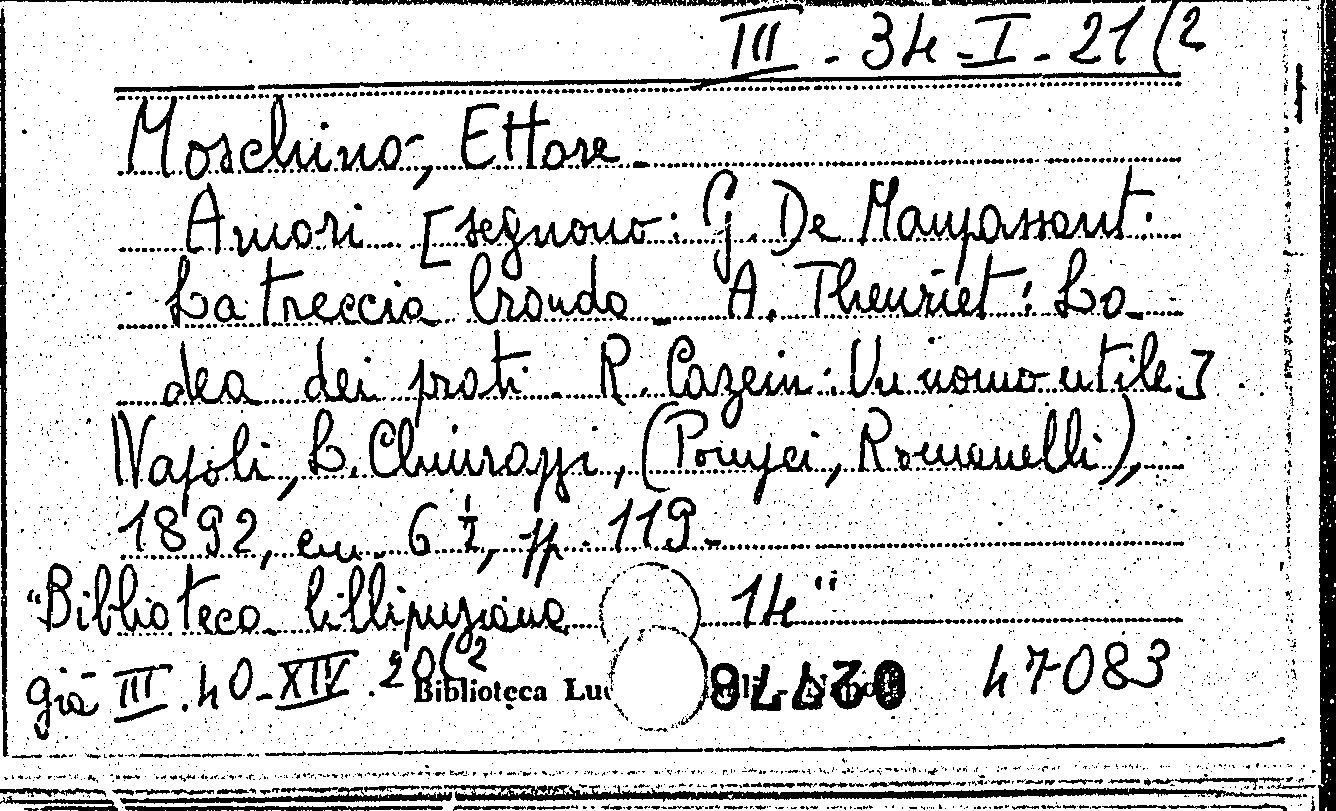 III - 34 - I - 21 (2
Moschino, Ettore -
Amori [seguono: G. De Maupassant:
La treccia bionda - A. Theuriet: La
dea dei prati - R. Cazein: Un uomo utile]
Napoli, L. Chiurazzi, (Pompei, Romanelli),
1892, cm. 6 ½, pp. 119 -
"Biblioteca lillipuziana 14"
già III. 40 - XIV. 20 (2
Biblioteca Luc
47083